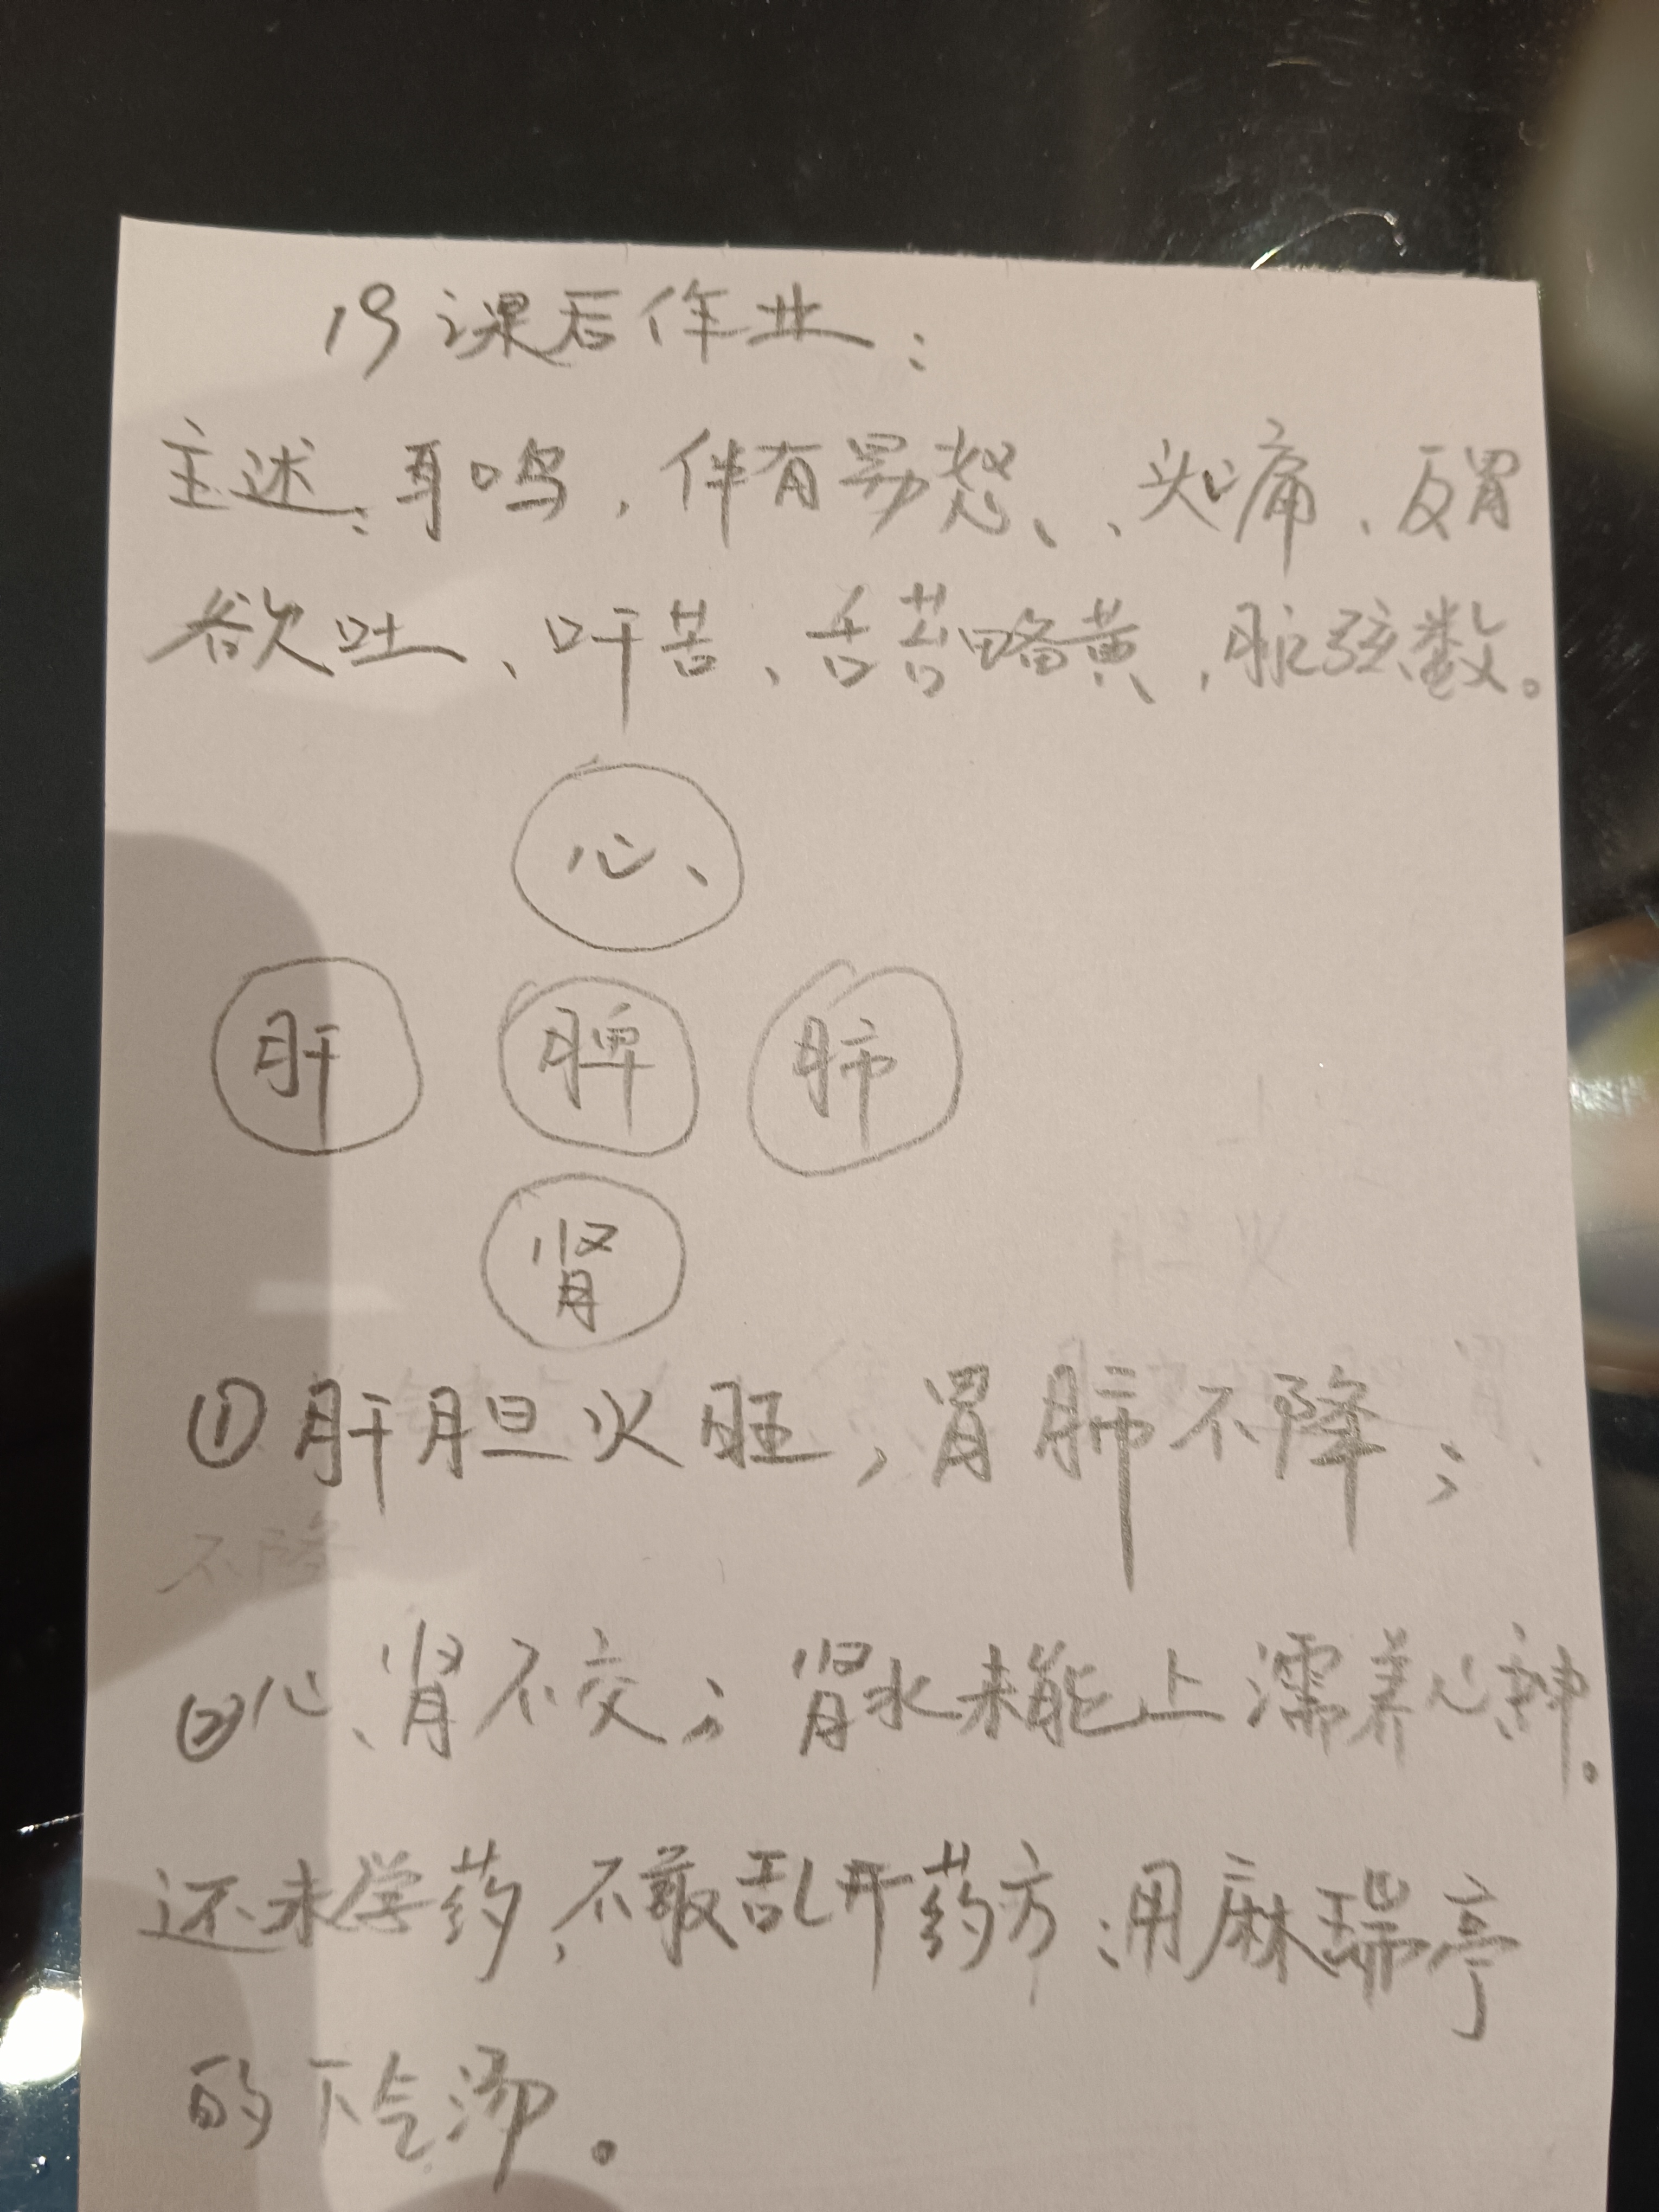 19课后作业：
主述：耳鸣，伴有易怒、、头痛、反胃
欲吐、口干苦、舌苔略黄，脉弦数。
心
肝 脾 肺
肾
①肝胆火旺，胃肺不降；
②心、肾不交；肾水未能上濡养心神。
还未学药，不敢乱开药方：用麻瑞亭
的下气汤。